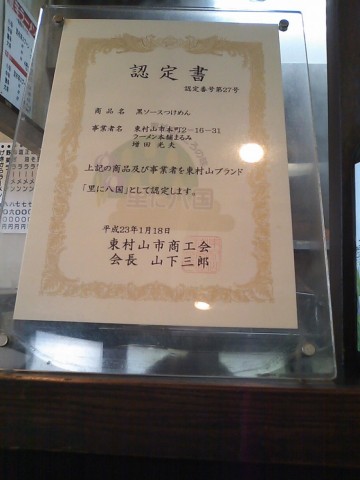 認定書
認定番号第27号
商品名 黒ソースつけめん
事業者名 東村山市本町2-16-31
ラーメン本舗まるみ
増田光夫
上記の商品及び事業者を東村山ブランド
「里に八国」として認定します。
平成23年1月18日
東村山市商工会
会長 山下三郎
里に八国